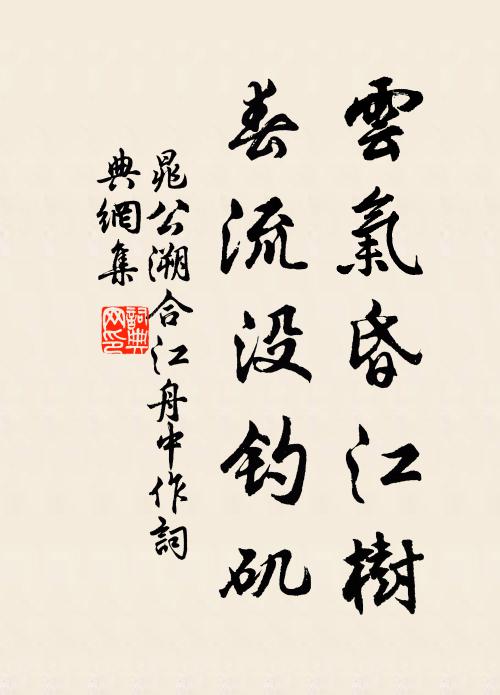 雲氣昏江樹
春流没钓矶
晁公溯合江舟中作詞
典網集
詞典
网印